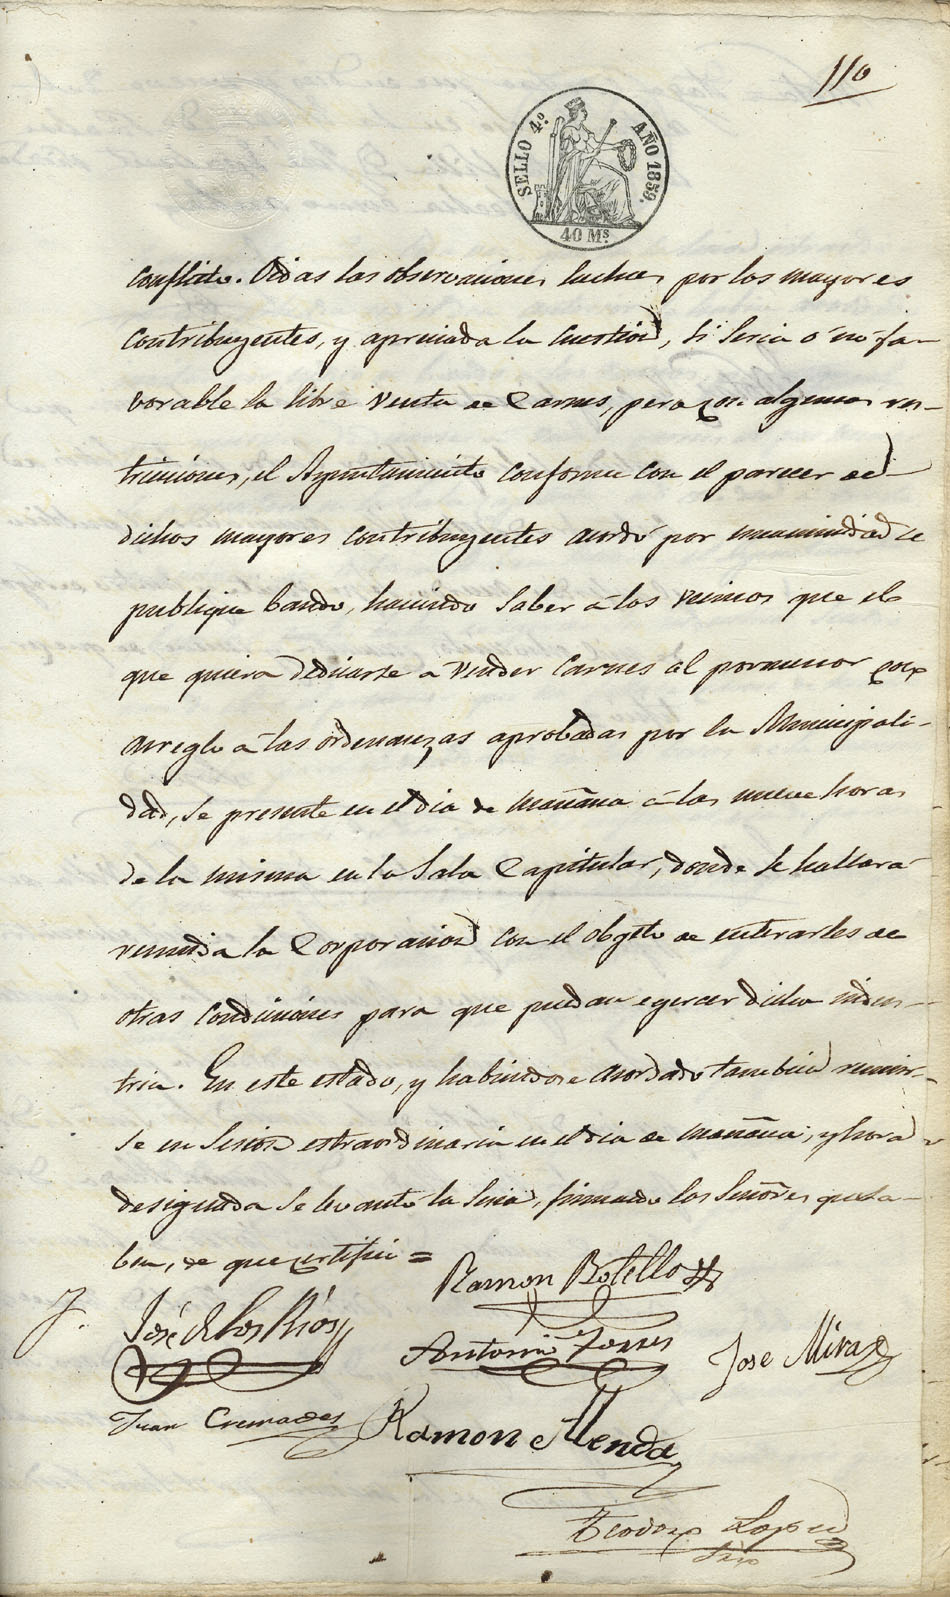 110
SELLO 4.º AÑO 1859.
40 Mˢ
conflicto. Oidas las observaciones hechas por los mayores
contribuyentes, y apreciada la cuestion, si seria ó no fa-
vorable la libre venta de Carnes, pero con algunas res-
tricciones, el Ayuntamiento conforme con el parecer de
dichos mayores contribuyentes acordó por unanimidad se
publique bando, haciendo saber á los vecinos que el
que quiera dedicarse á vender carnes al pormenor con
arreglo á las ordenanzas aprobadas por la Municipali-
dad, se presente en el dia de mañana á las nueve horas
de la misma en la Sala Capitular, donde se hallará
reunida la Corporacion con el objeto de enterarles de
otras condiciones para que puedan egercer dicha indus-
tria. En este estado, y habiendose acordado tambien reunir-
se en sesion estraordinaria en el dia de mañana, y hora
designada se levantó la sesion, firmando los Señores que sa-
ben, de que certifico =
Ramon Botello
José de los Rios
Antonio Torres
Jose Mira
Juan Cremades
Ramon Llenda
Teodoro Lopez
Srio